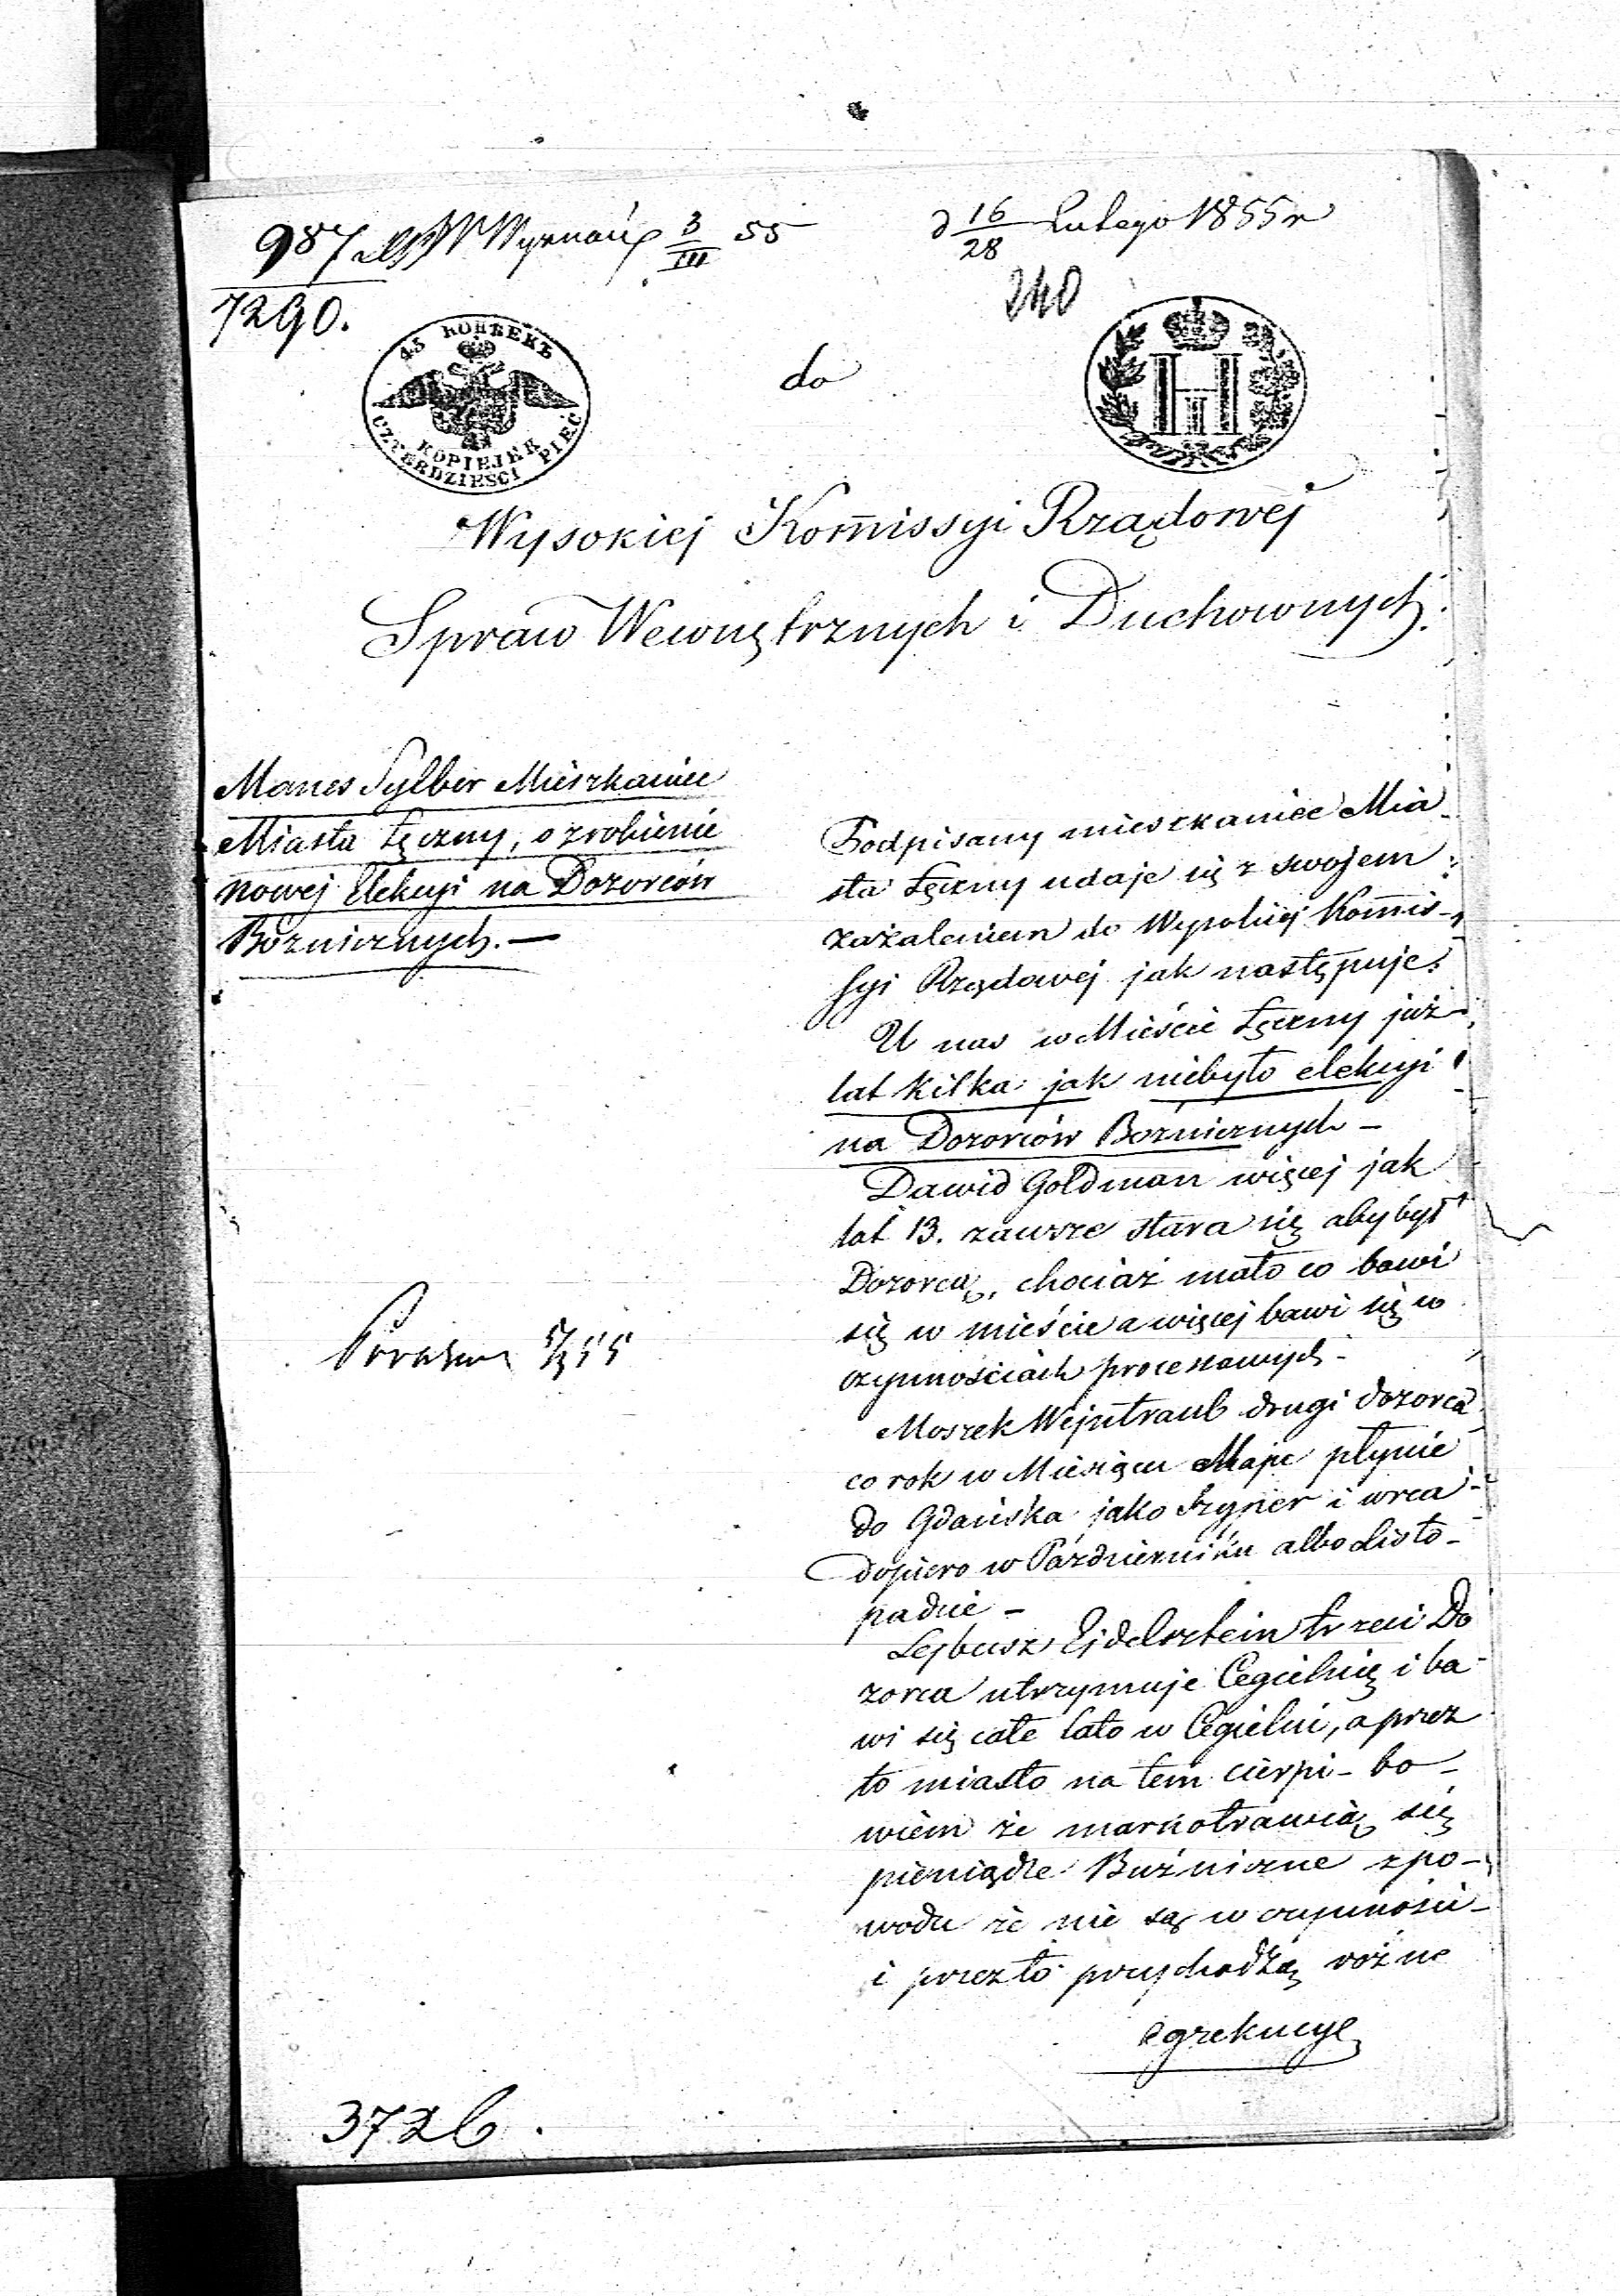 987 Wyznań 3/III 55
d 16/28 Lutego 1855 r
7290.
240
45 КОПѢЕКЪ
KOPIEJEK
CZTERDZIEŚCI PIĘĆ
do
H
Wysokiej Kom̄issyi Rządowej
Spraw Wewnętrznych i Duchownych.
Manes Sylber Mieszkaniec
Miasta Łęczny, o zrobienie
nowej Elekcyi na Dozorców
Bożnicznych.—
Podpisany mieszkaniec Mia-
sta Łęczny udaje się z swojem
zażaleniem do Wysokiej Kom̄is-
syi Rządowej jak następuje:
U nas w Mieście Łęczny już
lat kilka jak niebyło elekcyi
na Dozorców Bożnicznych-
Dawid Goldman więcej jak
lat 13. zawsze stara się aby był
Dozorcą, chociaż mało co bawi
się w mieście a więcej bawi się w
czynnościach processowych-
Moszek Wejntraub drugi dozorca
co rok w Miesiącu Maju płynie
do Gdańska jako Szyper i wraca
dopiero w Październiku albo Listo-
padzie-
Lejbusz Ejdelsztein trzeci Do
zorca utrzymuje Cegielnię i ba-
wi się całe lato w Cegielni, a przez
to miasto na tem cierpi- bo-
wiem że marnotrawią się
pieniądze Buźniczne z po-
wodu że nie są w czynności-
i przezto przychodzą różne
egzekucye
5/3 55
3726.